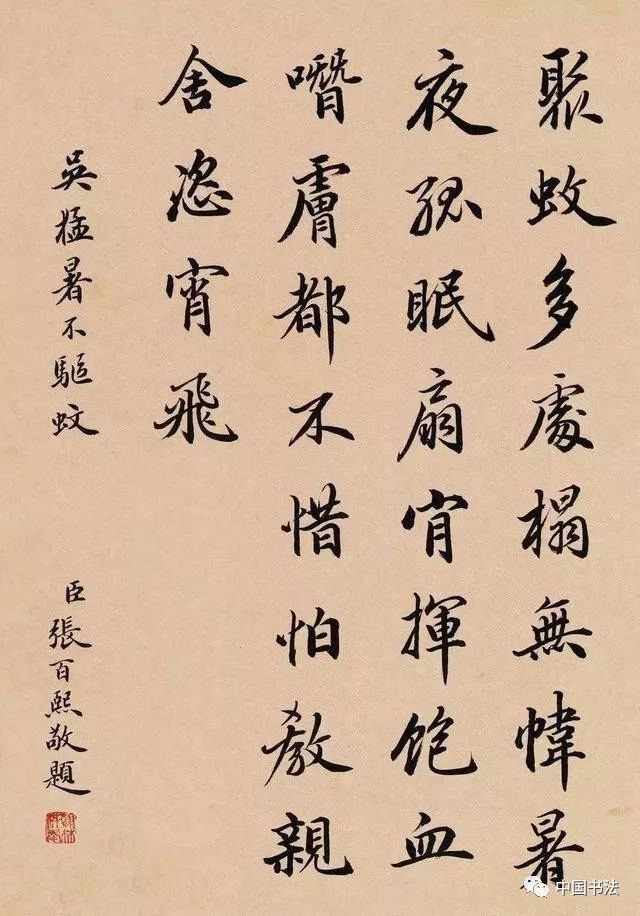 聚蚊多處榻無幃暑
夜孤眠扇肯揮飽血
噆膚都不惜怕教親
舍恣宵飛
吳猛暑不驅蚊
臣張百熙敬題
中国书法